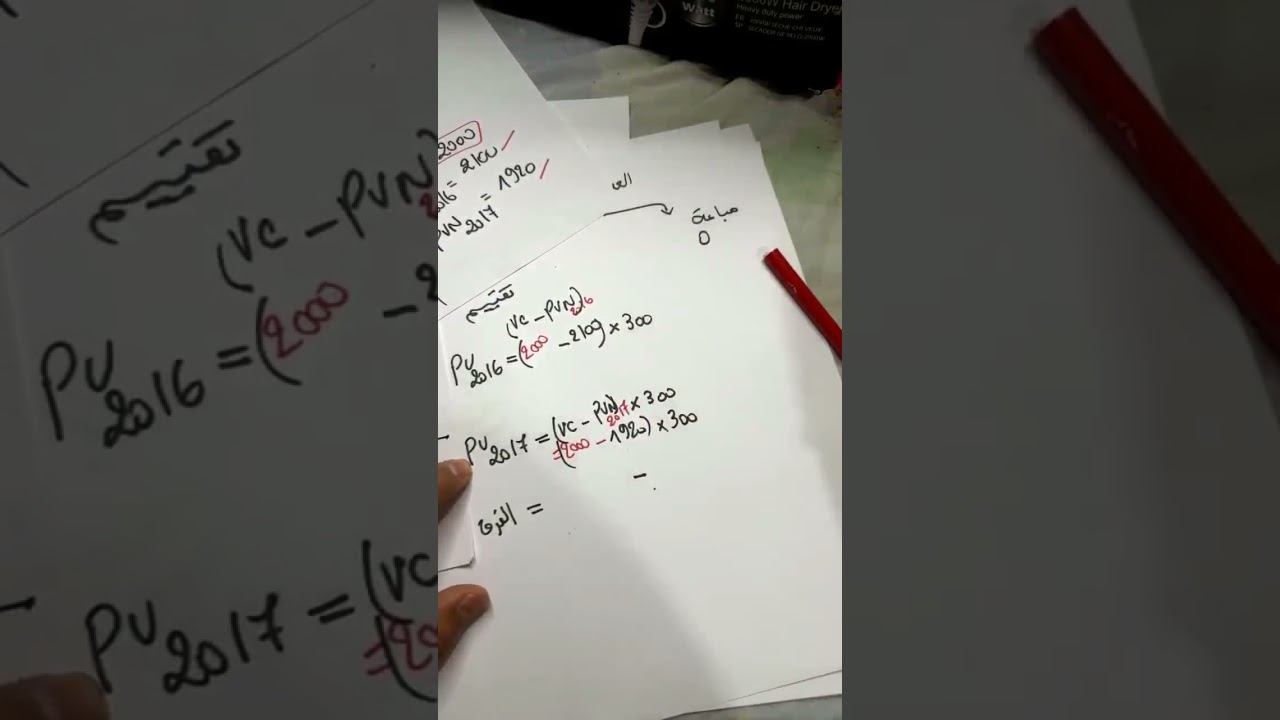 Hair Dryer
Watt
Heavy duty power
2000
2016 = 2100
PVN 2017 = 1920
صباعة
0
تقييم
(VC - PVN) 2016
PV 2016 = (2000 - 2100) × 300
PV 2017 = (VC - PVN) 2017 × 300
= (2000 - 1920) × 300
-
الفرق =